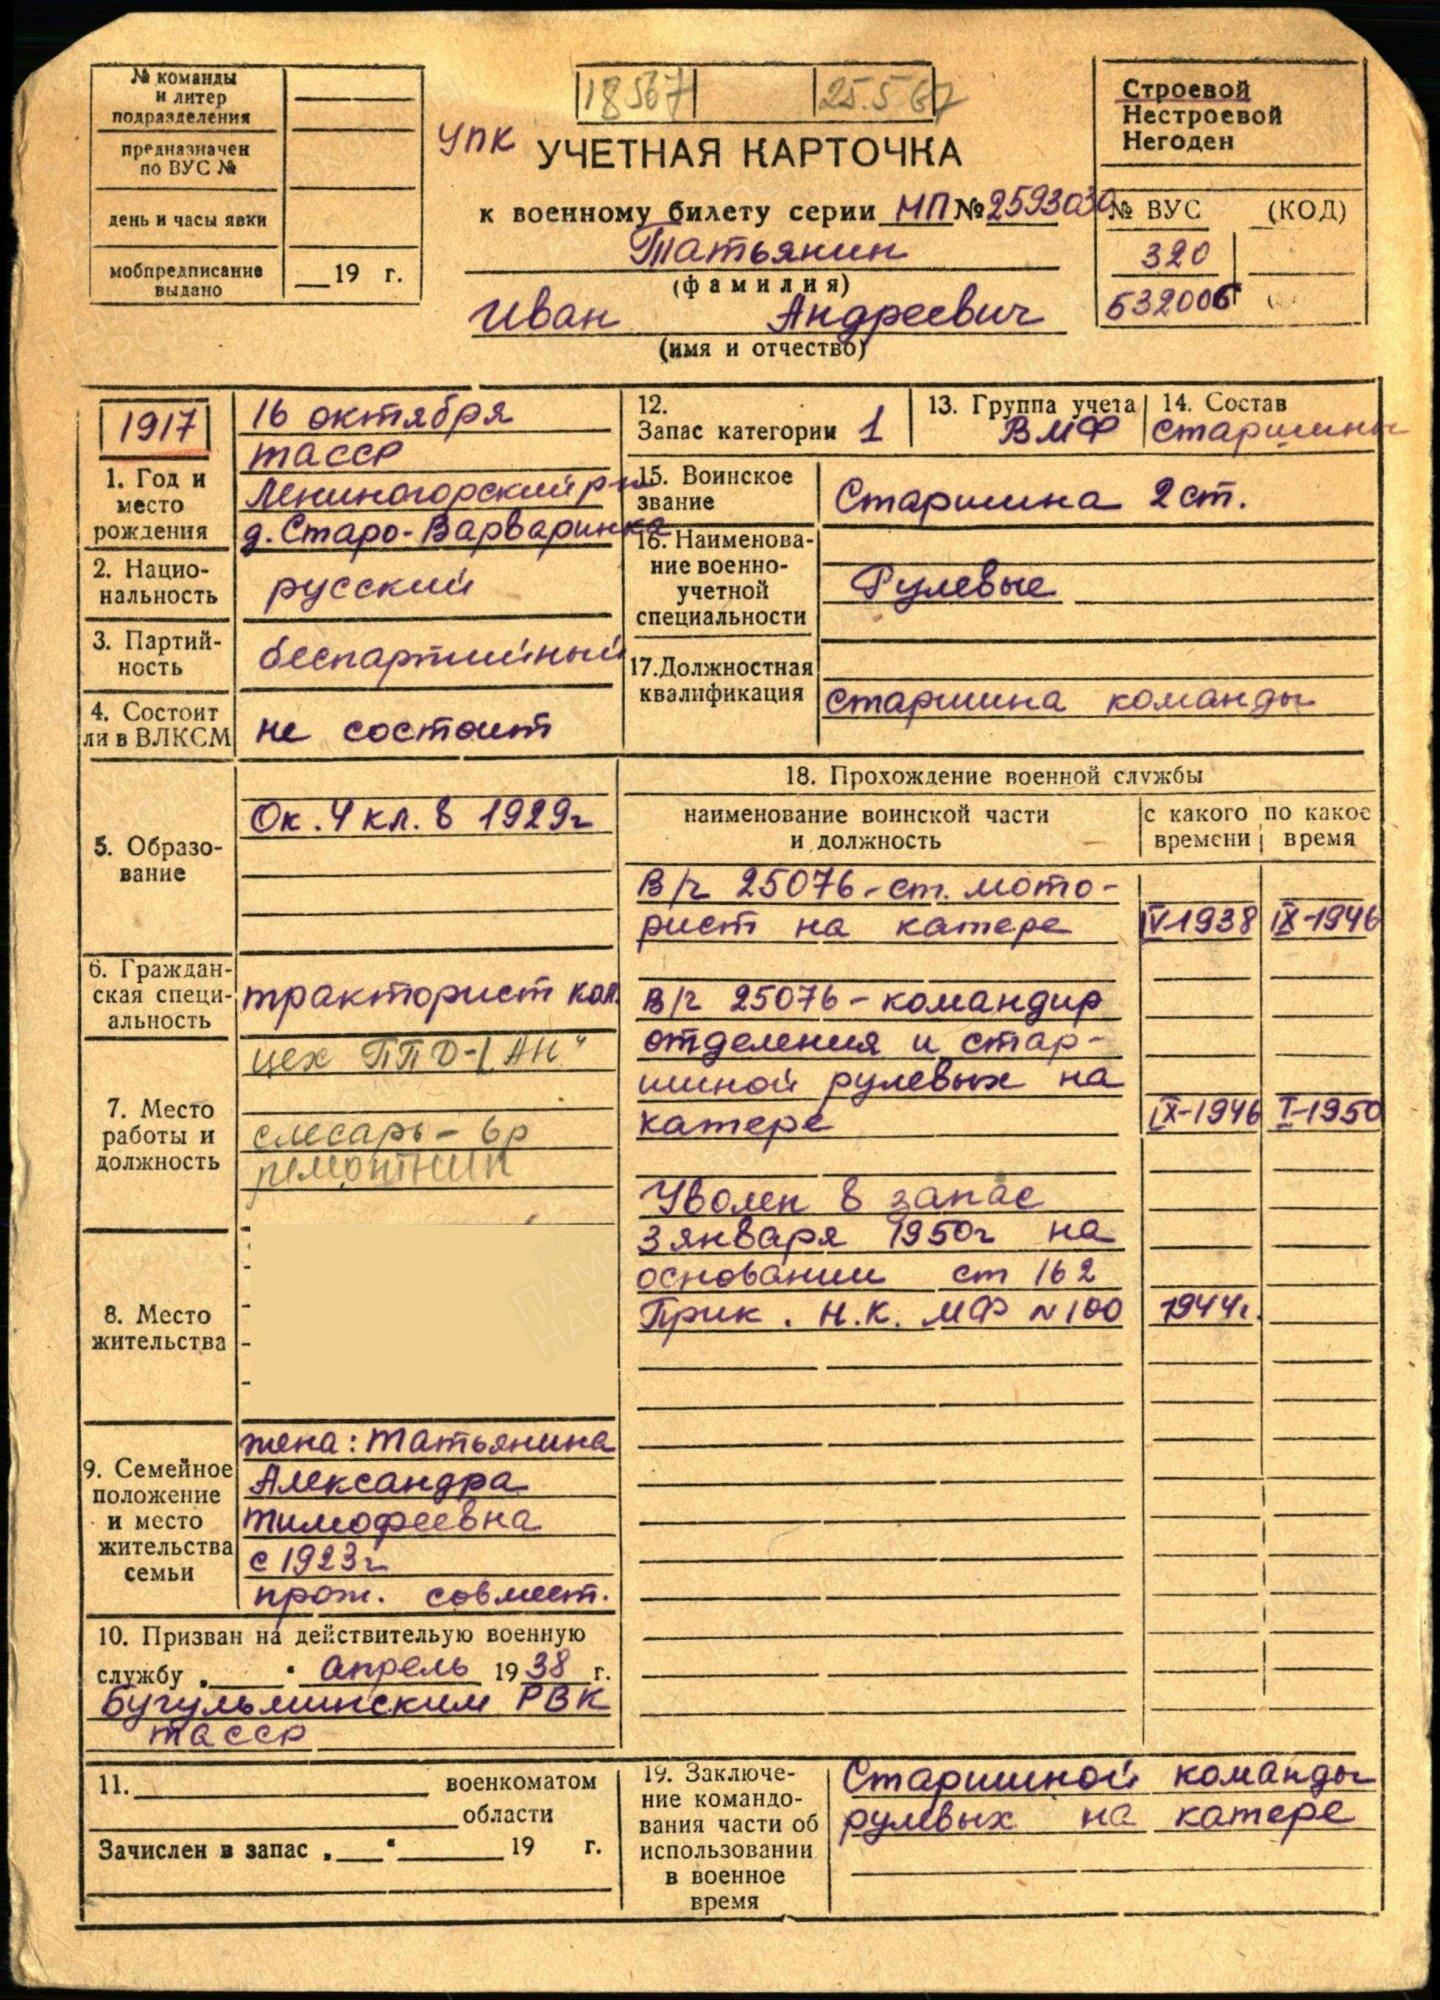 № команды
и литер
подразделения
предназначен
по ВУС №
день и часы явки
мобпредписание
выдано
19 г.
18567
25.5.67
УПК
УЧЕТНАЯ КАРТОЧКА
к военному билету серии МП № 2593030
Татьянин
(фамилия)
Иван Андреевич
(имя и отчество)
Строевой
Нестроевой
Негоден
№ ВУС (КОД)
320
532006
1917
1. Год и
место
рождения
16 октября
ТАССР
Лениногорский р-н
д. Старо-Варваринка
2. Нацио-
нальность
русский
3. Партий-
ность
беспартийный
4. Состоит
ли в ВЛКСМ
не состоит
12.
Запас категории 1
13. Группа учета
ВМФ
14. Состав
старшины
15. Воинское
звание
Старшина 2 ст.
16. Наименова-
ние военно-
учетной
специальности
Рулевые
17. Должностная
квалификация
старшина команды
5. Образо-
вание
Ок. 4 кл. в 1929г
6. Граждан-
ская специ-
альность
тракторист кол.
7. Место
работы и
должность
цех ППД-
слесарь - 6р
ремонтник
8. Место
жительства
9. Семейное
положение
и место
жительства
семьи
жена: Татьянина
Александра
Тимофеевна
с 1923г
прож. совмест.
10. Призван на действительую военную
службу „ “ апрель 1938 г.
Бугульминским РВК
ТАССР
11. военкоматом
области
Зачислен в запас „ “ 19 г.
18. Прохождение военной службы
наименование воинской части
и должность
с какого
времени
по какое
время
В/ч 25076 - ст. мото-
рист на катере IV-1938 IX-1946
В/ч 25076 - командир
отделения и стар-
шиной рулевых на
катере IX-1946 I-1950
Уволен в запас
3 января 1950г на
основании ст 162
Прик. Н.К. МФ N 100 1944г.
19. Заключе-
ние командо-
вания части об
использовании
в военное
время
Старшиной команды
рулевых на катере